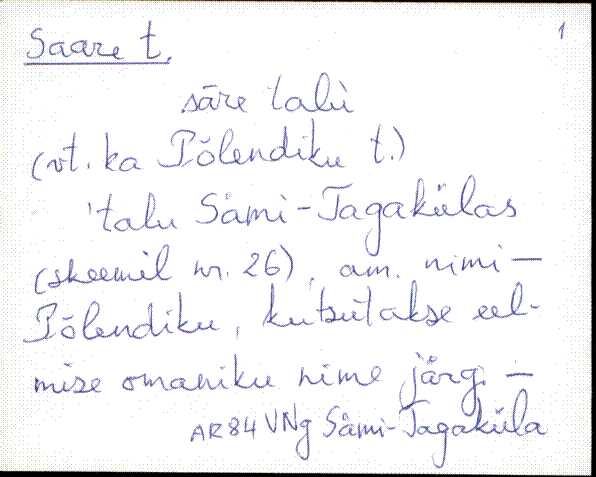 Saare t.
1
sāre talù
(vt. ka Põlendiku t.)
'talu Sämi-Tagakülas
(skeemil nr. 26), am. nimi —
Põlendiku, kutsutakse eel-
mise omaniku nime järg. —
AR84 VNg Sämi-Tagaküla